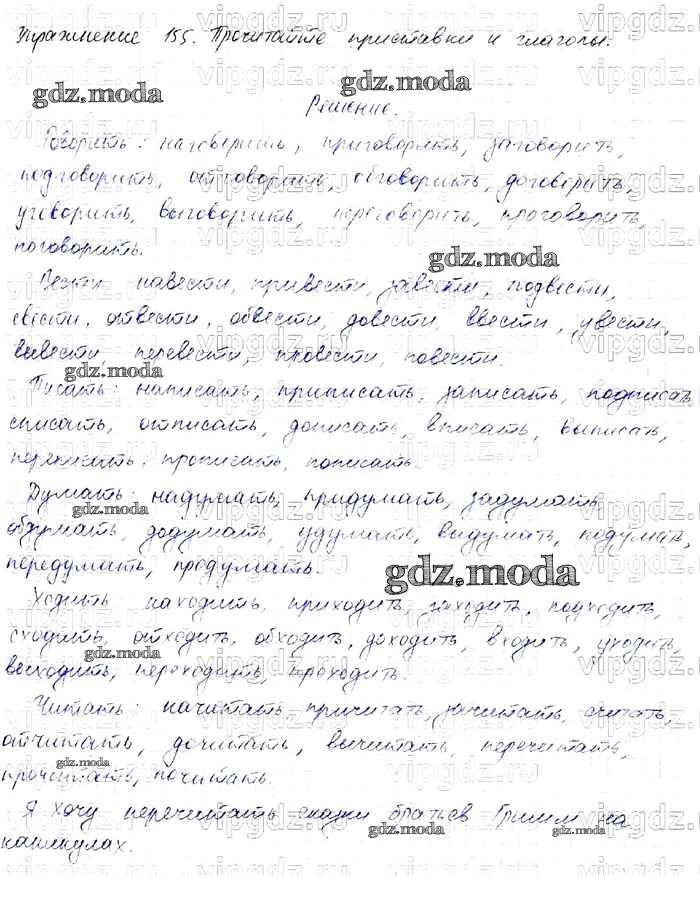 Упражнение 155. Прочитайте приставки и глаголы.
Решение.
Говорить: наговорить, приговорить, заговорить,
подговорить, отговорить, обговорить, договорить,
уговорить, выговорить, переговорить, проговорить,
поговорить.
Вести: навести, привести, завести, подвести,
свести, отвести, обвести, довести, ввести, увести,
вывести, перевести, провести, повести.
Писать: написать, приписать, записать, подписать
списать, отписать, дописать, вписать, выписать,
переписать, прописать, пописать.
Думать: надумать, придумать, задумать,
обдумать, додумать, удумать, выдумать, подумать,
передумать, продумать.
Ходить: находить, приходить, заходить, подходить,
сходить, отходить, обходить, доходить, входить, уходить,
выходить, переходить, проходить.
Читать: начитать, причитать, зачитать, считать,
отчитать, дочитать, вычитать, перечитать,
прочитать, почитать.
Я хочу перечитать сказки братьев Гримм на
каникулах.
gdz.moda
vipgdz.ru